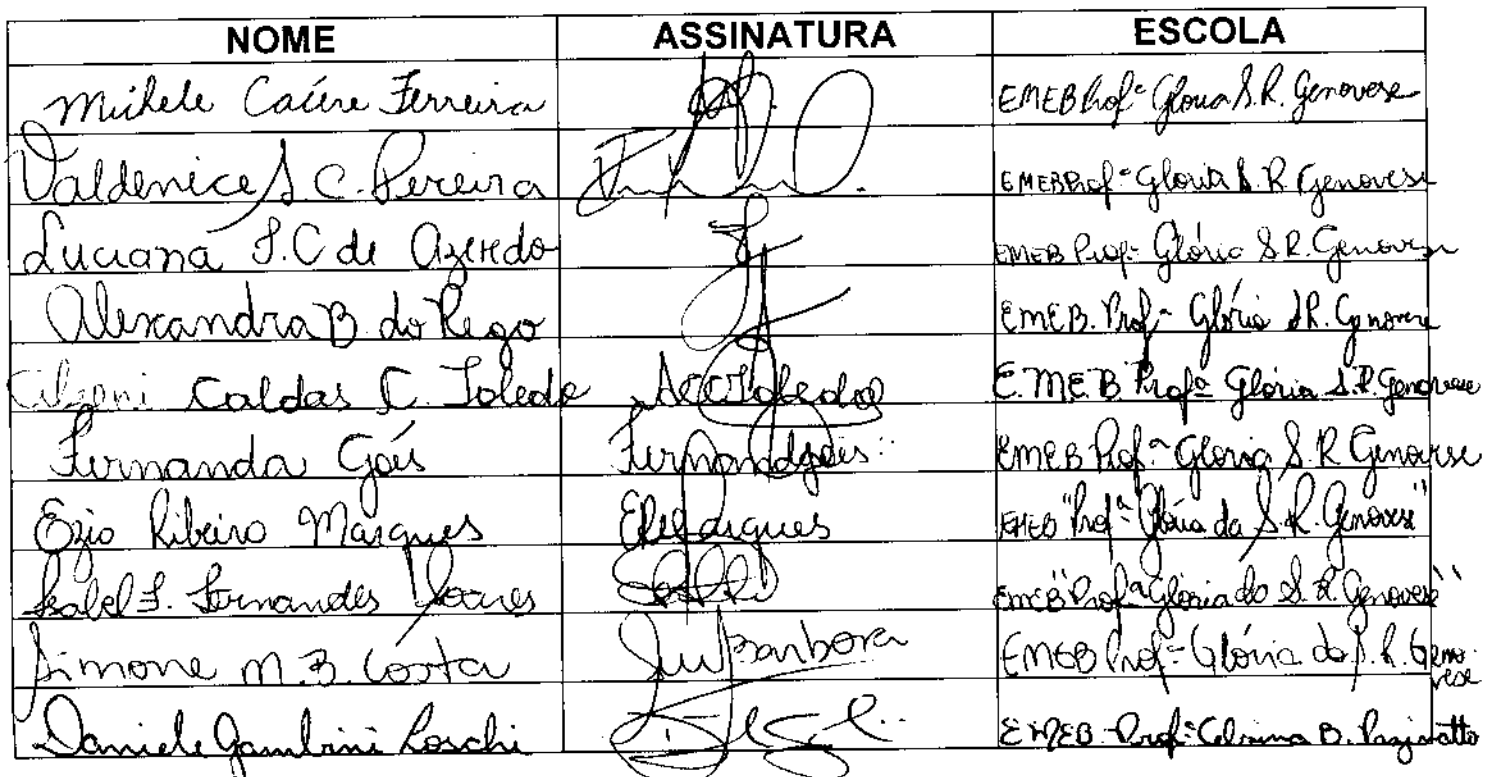 NOME ASSINATURA ESCOLA
Michele Caíre Ferreira EMEB Profª Gloria S.R. Genovese
Valdenice S. C. Pereira EMEB Profª Gloria S. R. Genovese
Luciana S.C de Azeredo EMEB Profª Glória S.R. Genovese
Alexandra B. do Rego EMEB. Profª Glória S.R. Genovese
Caldas C. Toledo ACCToledo E.M.E.B. Profª Glória S.R. Genovese
Fernanda Góis Fernandagóis EMEB Profª Gloria S. R Genovese
Ezio Ribeiro Marques EMEB "Profª Glória da S.R. Genovese"
Isabel F. Fernandes Soares EMEB "Profª Glória da S. R. Genovese"
Simone M.B. Costa Barbora EMEB Profª Glória da S. R. Genovese
Daniele Gambini Loschi EMEB Profª B.